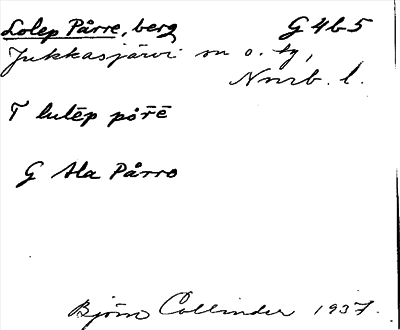 Lolep Pårre, berg G4b5
Jukkasjärvi sn o. tg,
Nrrb. l.
T lulēp på̄rē
G Ala Pårro
Björn Collinder 1937.